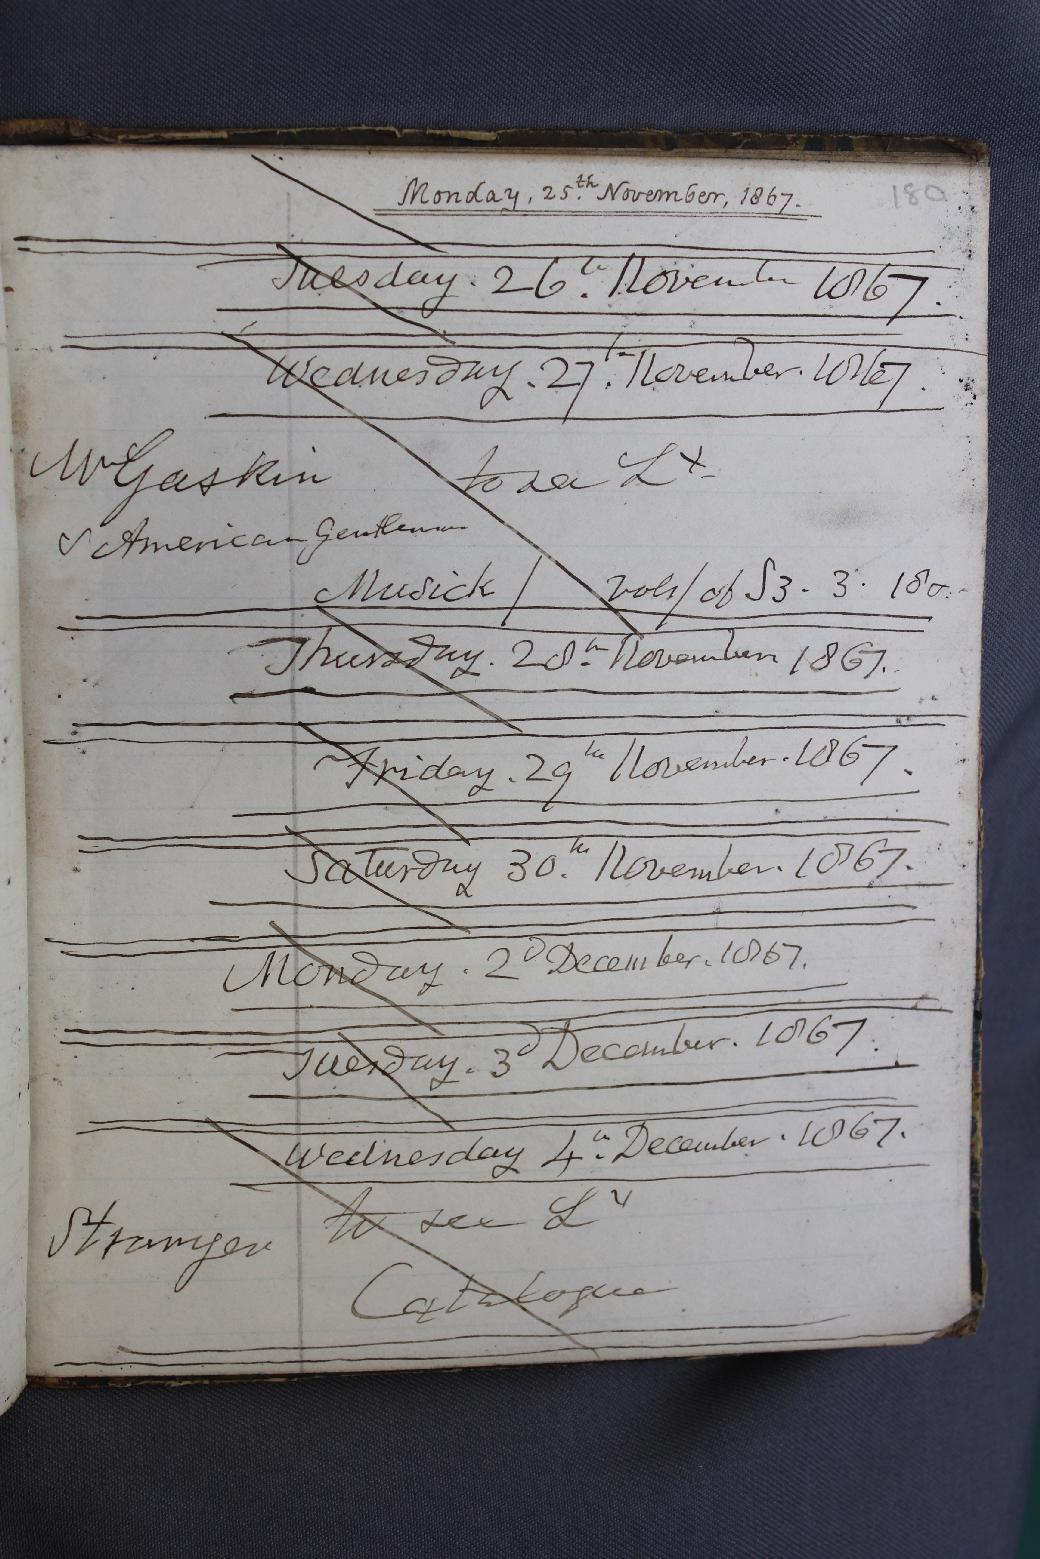 180
Monday, 25th. November, 1867.
Tuesday. 26th. November 1867.
Wednesday. 27th. November. 1867.
Mr Gaskin to see Ly
& American Gentleman
Musick / vols/ of S3. 3. 180.
Thursday. 28th. November. 1867.
Friday. 29th November. 1867.
Saturday 30th. November. 1867.
Monday. 2d December. 1867.
Tuesday. 3d December. 1867.
Wednesday 4th. December. 1867.
Stranger to see Ly
Catalogue